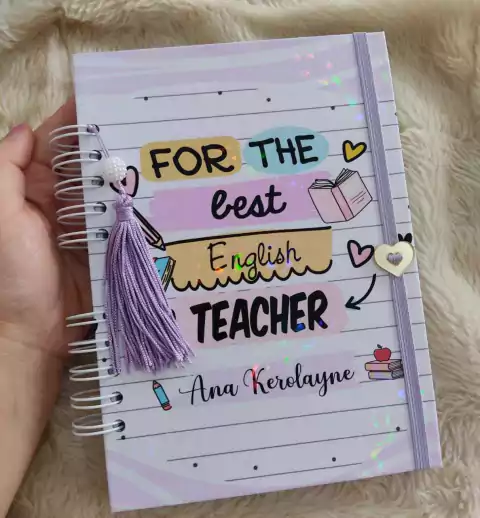 FOR THE
best
English
TEACHER
Ana Kerolayne